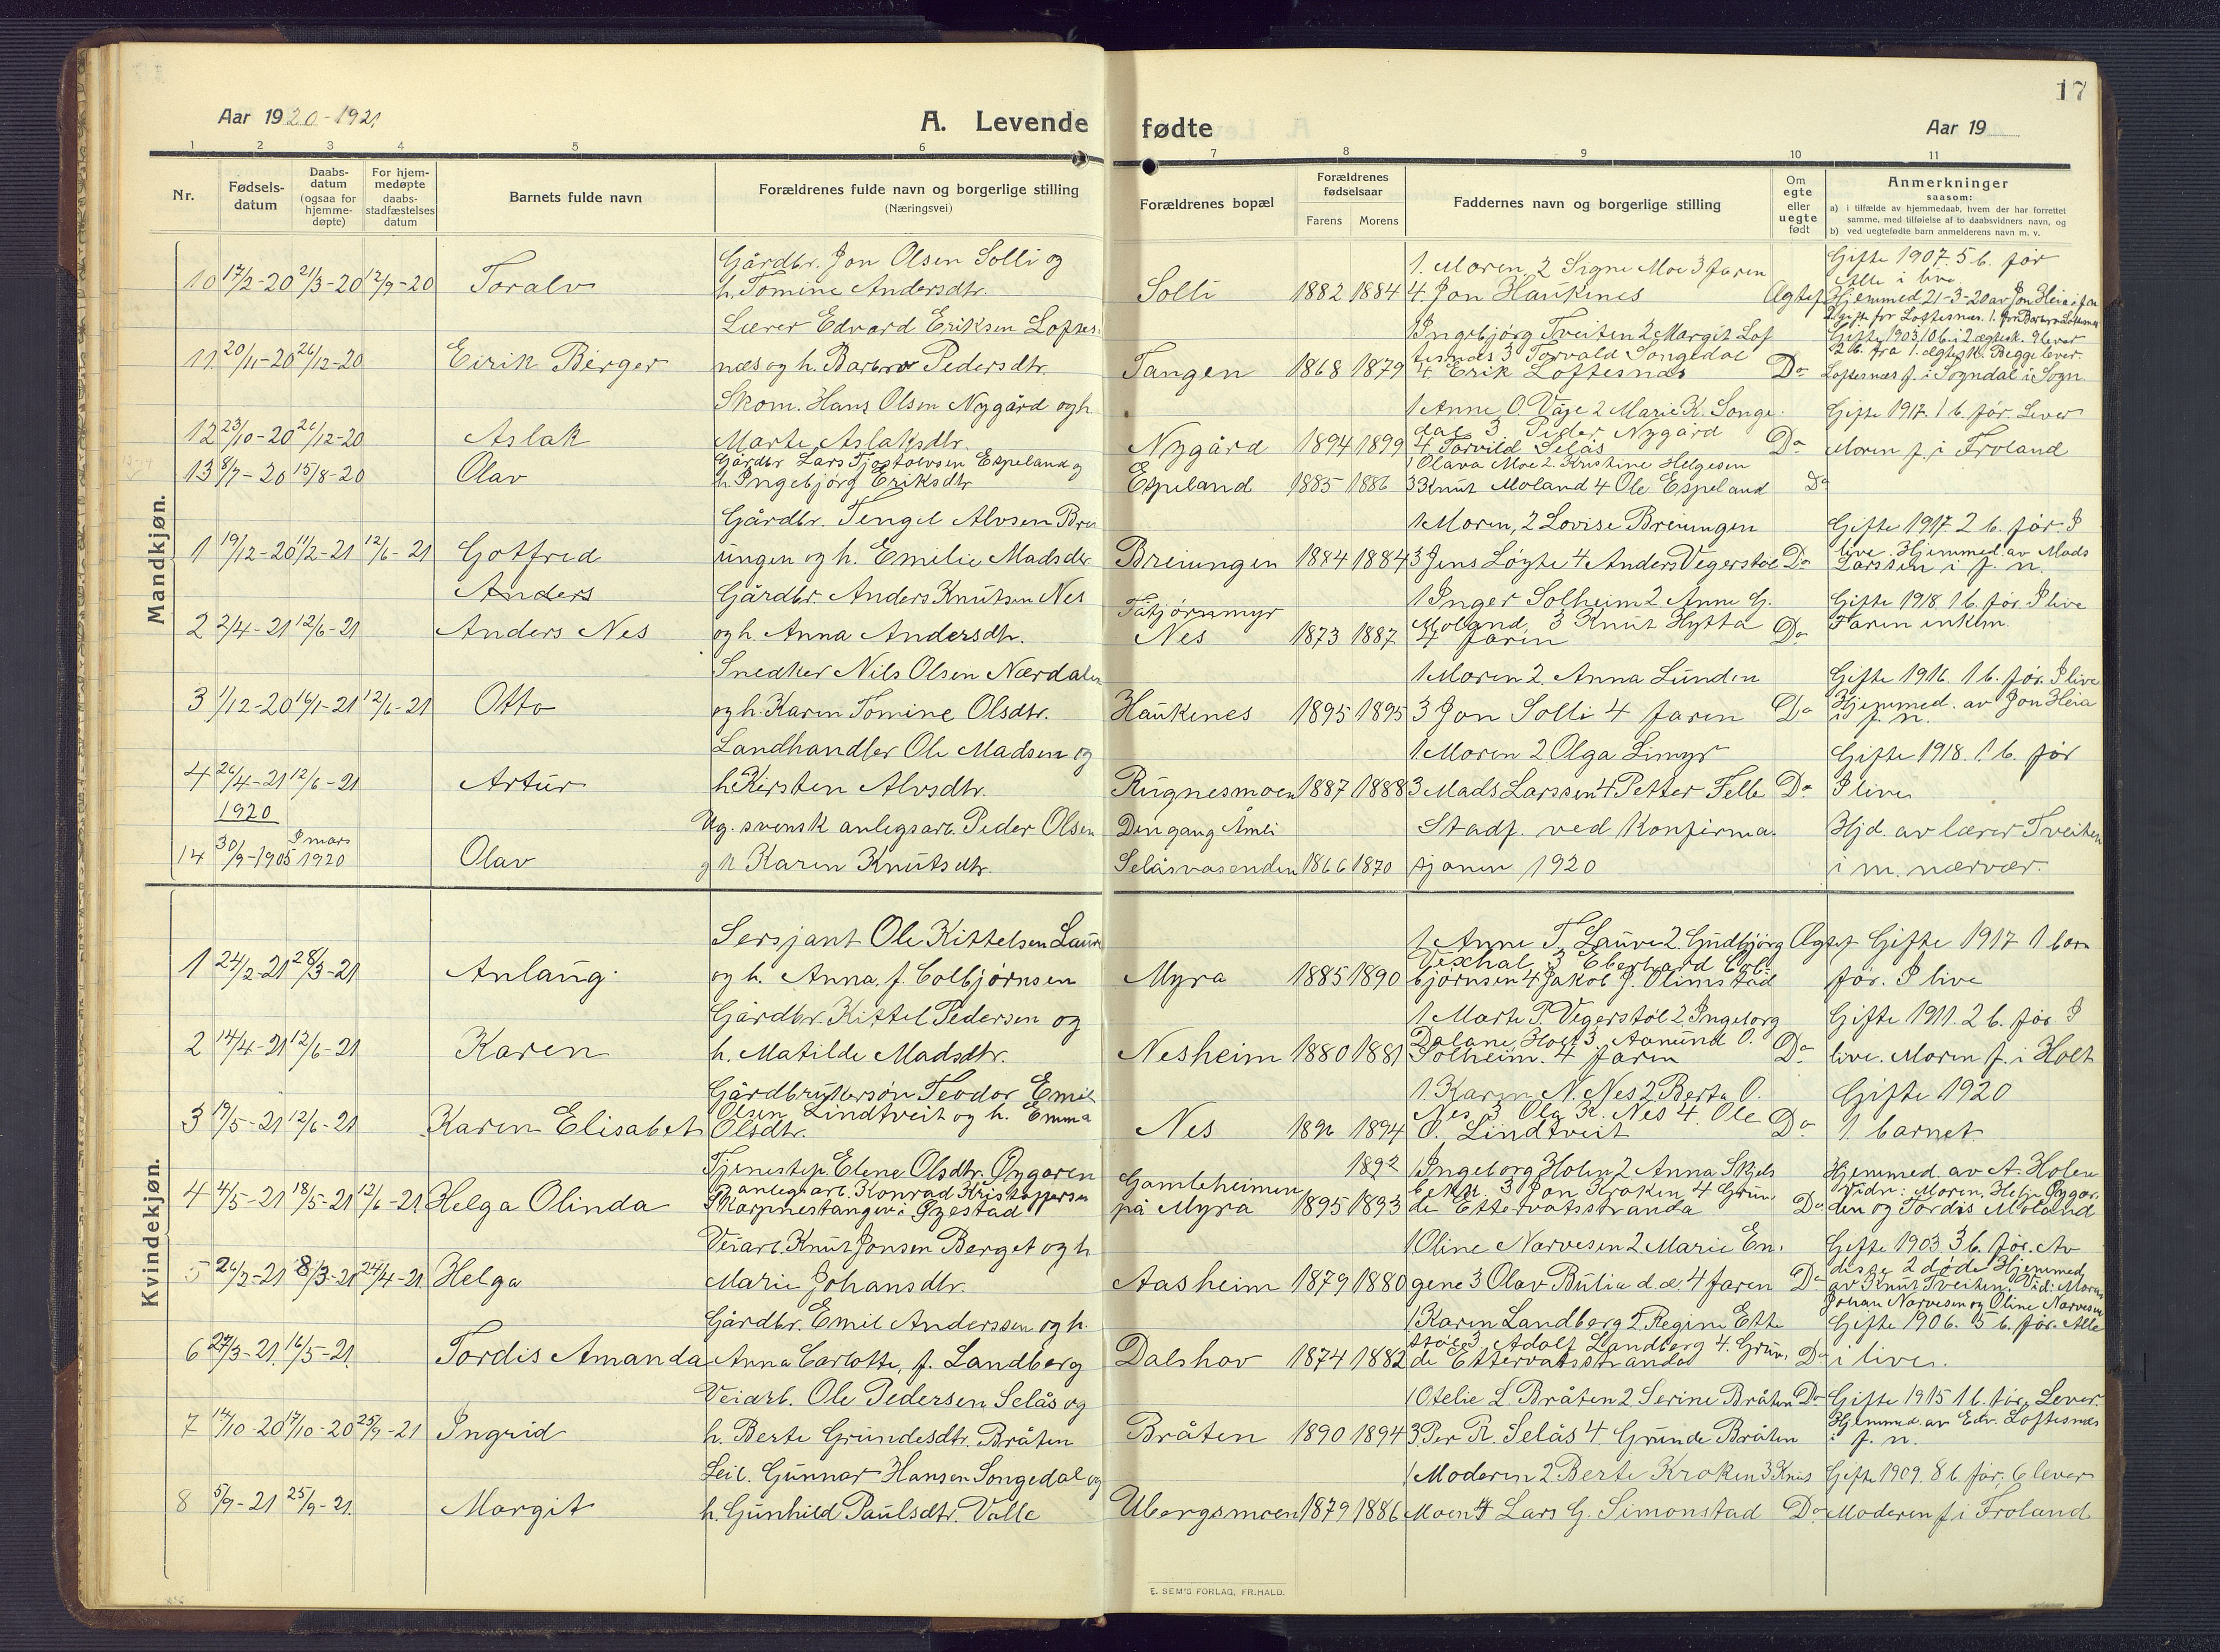 17
Aar 1920-1921
A. Levende fødte
Aar 19
1 2 3 4 5 6 7 8 9 10 11
Nr.
Fødsels-
datum
Daabs-
datum
(ogsaa for
hjemme-
døpte)
For hjem-
medøpte
daabs-
stadfæstelses
datum
Barnets fulde navn
Forældrenes fulde navn og borgerlige stilling
(Næringsvei)
Forældrenes bopæl
Forældrenes
fødselsaar
Farens Morens
Faddernes navn og borgerlige stilling
Om
egte
eller
uegte
født
Anmerkninger
saasom:
a) i tilfælde av hjemmedaab, hvem der har forrettet
samme, med tilføielse af to daabsvidners navn, og
b) ved uegtefødte barn anmelderens navn m. v.
Mandkjøn.
10 17/2-20 21/3-20 12/9-20 Toralv
Gårdbr. Jon Olsen Solli og
h. Tomine Andersdtr.
Solli 1882 1884
1. Moren, 2 Signe Moe 3 faren
4. Jon Haukenes
Ægtef
Gifte 1907. 5 b. før
Alle i live
Hjemmed. 21-3-20 av Jon Heia i f.n.
11 20/11-20 26/12-20 Eirik Birger
Lærer Edvard Eriksen Loftes-
næs og h. Barbro Pedersdtr.
Tangen 1868 1879
1 Ingebjørg Tveiten 2 Margit Lof
tesnæs 3 Torvald Songedal
4. Erik Loftesnæs
Do
Gifte 1903, 10 b. i 2 ægtesk. 9 lever
2 b. fra 1. ægtesk. Begge lever.
Loftesnæs f. i Sogndal i Sogn.
12 23/10-20 26/12-20 Aslak
Skom. Hans Olsen Nygård og h.
Marte Aslaksdtr.
Nygård 1894 1899
1 Anne O. Våje 2 Marie K. Songe-
dal 3 Peder Nygård
4 Torvild Selås
Do
Gifte 1917. 1 b. før. Lever
Moren f. i Froland
13 8/7-20 15/8-20 Olav
Gårdbr Lars Tjostolvsen Espeland og
h. Ingebjørg Eriksdtr
Espeland 1885 1886
1 Olava Moe 2. Kristine Helgesen
3 Knut Moland 4 Ole Espeland
Do
1 19/12-20 11/2-21 12/6-21 Gotfred
Gårdbr. Tengel Alvsen Brei
ungen og h. Emilie Madsdtr
Breiungen 1884 1884
1 Moren, 2 Lovise Breiungen
3 Jens Løyte 4 Anders Vegerstøl
Do
Gifte 1917 2 b. før. I
live. Hjemmed. av Mads
Larssen i f. n.
2 2/4-21 12/6-21 Anders
Anders Nes
Gårdbr. Anders Knutsen Nes
og h. Anna Andersdtr.
Nes 1873 1887
1 Inger Solheim 2 Anne G.
Moland, 3 Knut Hytta
4 faren
Do
Gifte 1918 1 b. før. I live
Faren enkem.
3 1/12-20 16/1-21 12/6-21 Otto
Snedker Nils Olsen Nærdalen
og h. Karen Tomine Olsdtr.
Haukenes 1895 1895
1 Moren 2. Anna Lunden
3 Jon Solli 4 faren
Do
Gifte 1916. 1 b. før. I live
Hjemmed. av Jon Heia
i f. n.
4 26/4-21 12/6-21 Artur
Landhandler Ole Madsen og
h. Kirsten Alvsdtr.
Rugnesmoen 1887 1888
1 Moren 2 Olga Limyr
3 Mads Larssen 4 Petter Felle
Do
Gifte 1918. 1 b. før
I live
1920
14 30/9-1905 I mars 1920 Olav
Ug. svensk anlegsarb. Peder Olsen
og h Karen Knutsdtr.
Dengang Åmli
Selåsvasenden 1866 1870
Stadf. ved Konfirma-
sjonen 1920
Hjd. av lærer Tveiten
i m. nærvær.
Kvindekjøn.
1 24/2-21 28/3-21 Anlaug
Sersjant Ole Kittelsen Lauve
og h. Anna, f. Colbjørnsen
Myra 1885 1890
1 Anne T. Lauve 2. Gudbjørg
Vexhal 3 Eberhard Col-
bjørnsen 4 Jakob J. Olimstad
Ægtef
Gifte 1917 1 barn
før. I live
2 14/4-21 12/6-21 Karen
Gårdbr. Kittel Pedersen og
h. Matilde Madsdtr.
Nesheim 1880 1881
1 Marte P. Vegerstøl 2 Ingeborg
Dalane, Holt 3. Aamund O.
Solheim. 4 faren
Do
Gifte 1911. 2 b. før I
live. Moren f. i Holt
3 19/5-21 12/6-21 Karen Elisabet
Gårdbrukersøn Teodor Emil
Olsen Lindtveit og h. Emma
Olsdtr.
Nes 1896 1894
1 Karen N. Nes 2 Berta O.
Nes 3 Ola K. Nes 4. Ole
O. Lindtveit
Do
Gifte 1920
1. barnet.
4 4/5-21 18/5-21 12/6-21 Helga Olinda
Tjenestep. Elene Olsdtr. Øygaren
anlegsarb. Konrad Kristoffersen
Skarpnestangen i Øyestad
Gamleheimen
på Myra 1895 1893 1892
1 Ingeborg Holen 2 Anna Skjels
bekk 3 Jon Kroken 4 Grun-
de Ettervatsstranda
Do
Hjemmed. av A. Holen
Vidn: Moren, Helje Øygar-
den og Tordis Moland
5 26/2-21 8/3-21 24/4-21 Helga
Veiarb. Knut Jonsen Berget og h
Marie Johansdtr.
Aasheim 1879 1880
1 Oline Narvesen 2 Marie En-
gene 3 Olav Bulia d. æ. 4 faren
Do
Gifte 1903. 3 b. før. Av
disse 2 døde Hjemmed
av Knut Tveiten. Vid: Moren
Johan Narvesen og Oline Narvesen
6 27/3-21 16/5-21 Tordis Amanda
Gårdbr. Emil Anderssen og h.
Anna Carlotte, f. Landberg
Dalshov 1874 1882
1 Karen Landberg 2. Regine Ette
støl 3 Adolf Landberg 4. Grun-
de Ettervatsstranda
Do
Gifte 1906. 5 b. før. Alle
i live.
7 14/10-20 17/10-20 25/9-21 Ingrid
Veiarb. Ole Pedersen Selås og
h. Berte Grundesdtr. Bråten
Bråten 1890 1894
1 Otelie L. Bråten 2 Serine Bråten
3 Per R. Selås 4. Grunde Bråten
Do
Gifte 1915 1 b. før. Lever.
Hjemmed. av Edv. Loftesnæs
i f. n.
8 5/9-21 25/9-21 Margit
Leil. Gunnar Hansen Songedal og
h. Gunhild Paulsdtr. Valle
Ubergsmoen 1879 1886
1 Moderen 2 Berte Kroken 3 Knut
Moen 4 Lars G. Simonstad
Do
Gifte 1909. 8 b. før, 6 lever
Moderen f. i Froland
E. SEM'S FORLAG, FR.HALD.